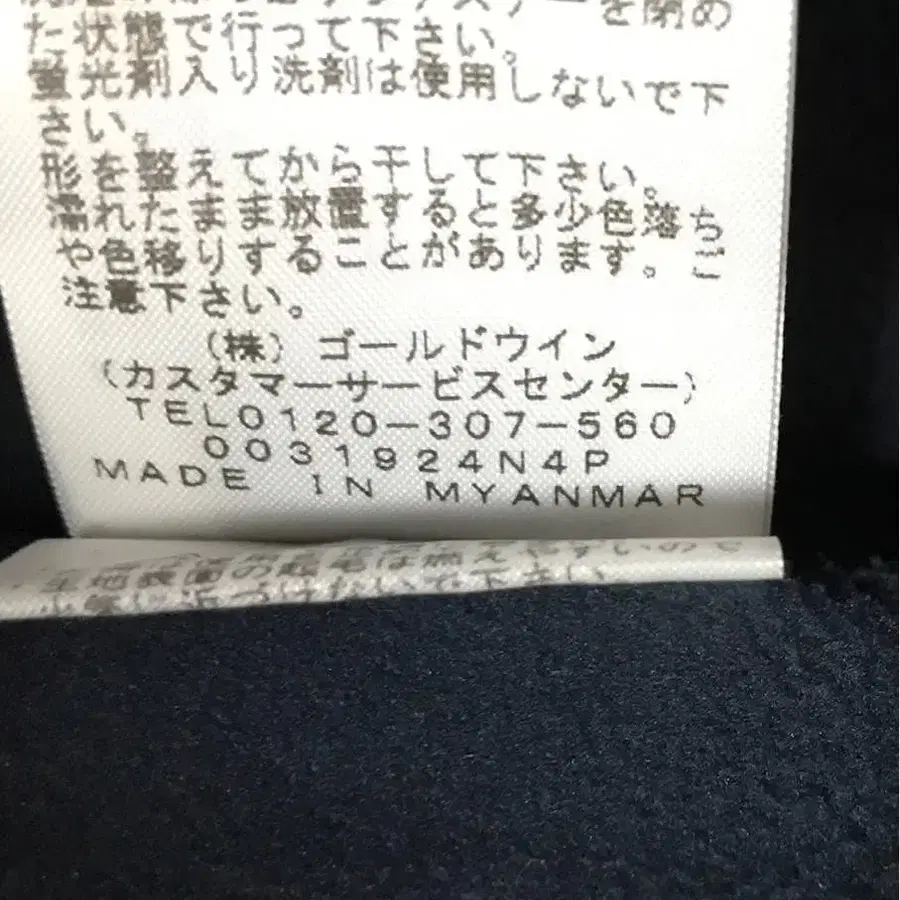 を閉め
た状態で行って下さい。
蛍光剤入り洗剤は使用しないで下
さい。
形を整えてから干して下さい。
濡れたまま放置すると多少色落ち
や色移りすることがあります。ご
注意下さい。
(株)ゴールドウイン
(カスタマーサービスセンター)
TEL0120-307-560
0031924N4P
MADE IN MYANMAR
生地表面の起毛は燃えやすいので